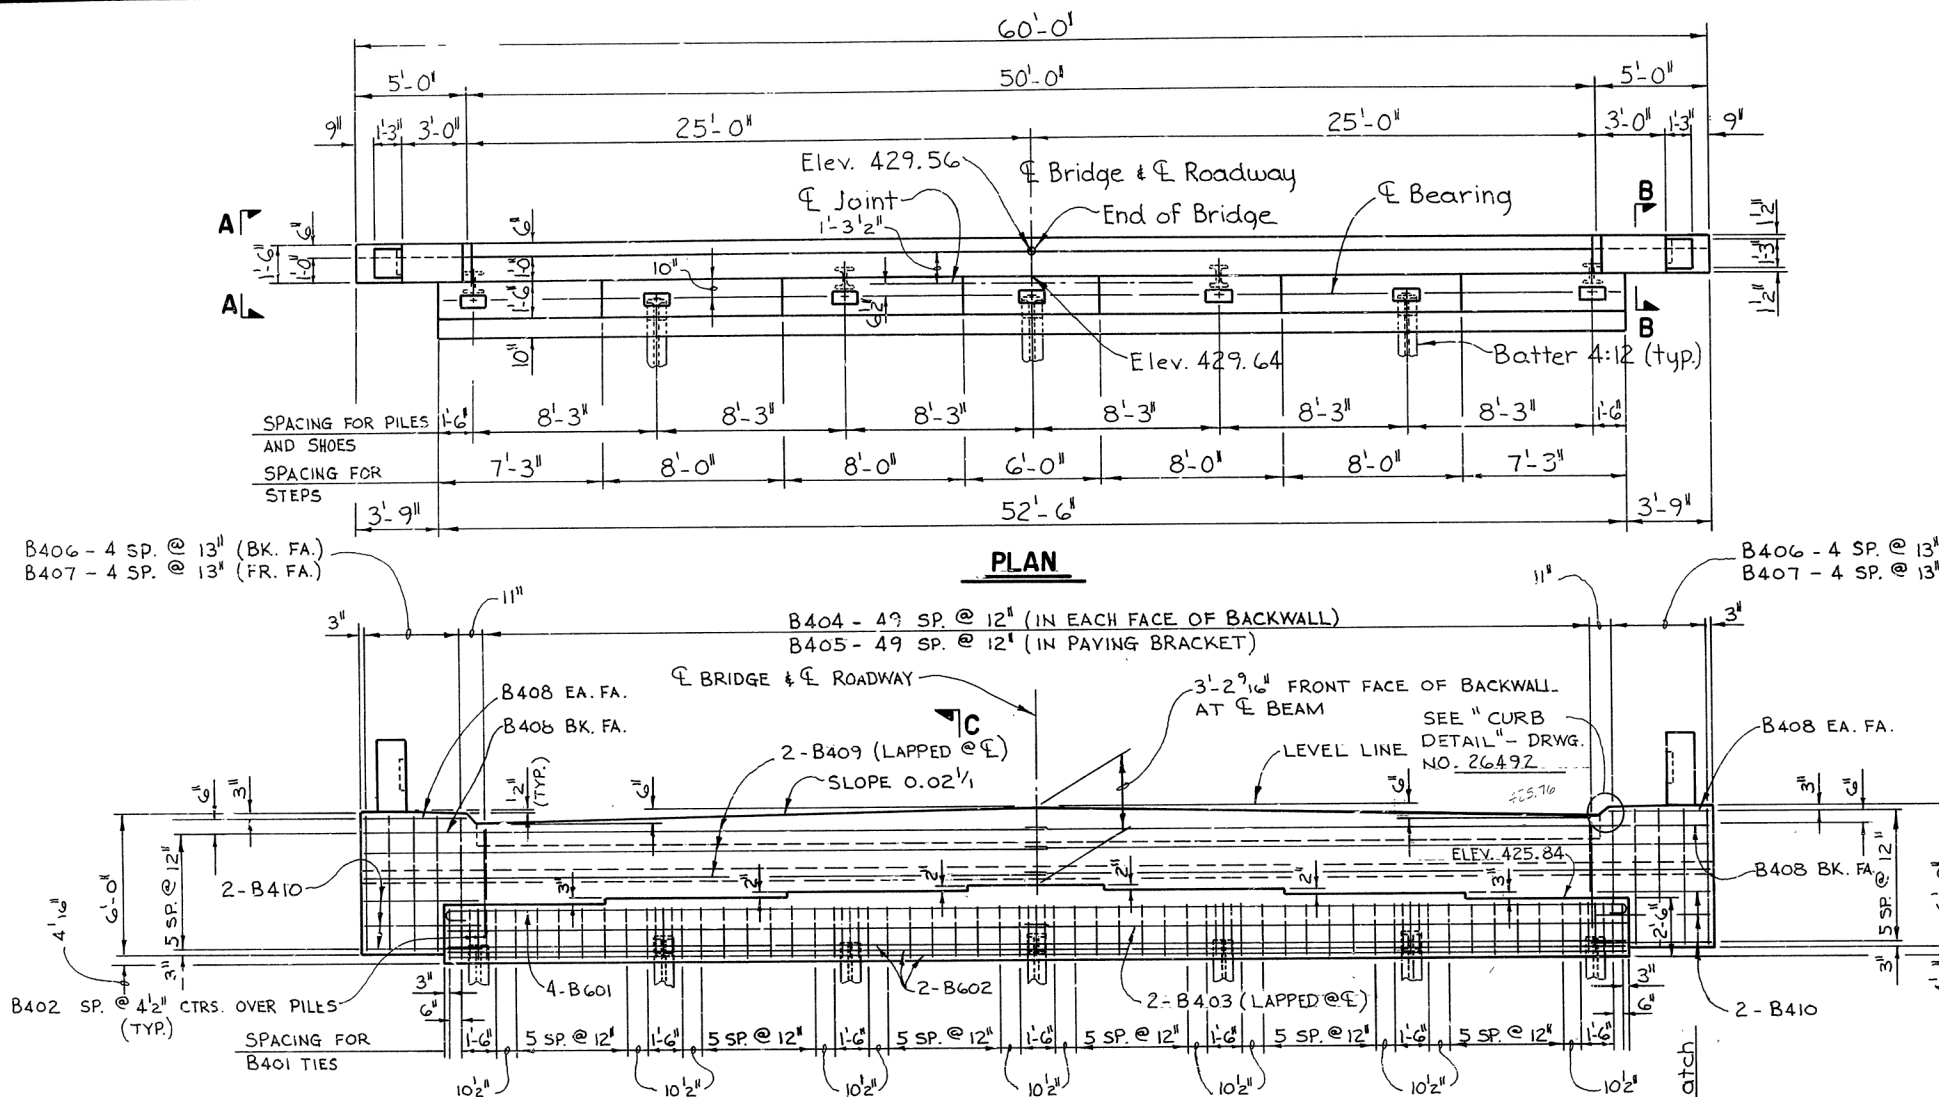 60'-0"
5'-0" 50'-0" 5'-0"
9" 1'-3" 3'-0" 25'-0" 25'-0" 3'-0" 1'-3" 9"
Elev. 429.56
℄ Bridge & ℄ Roadway
℄ Joint
1'-3½"
End of Bridge
℄ Bearing
A
A
B
B
1'-6"
6"
1'-0"
6"
1'-0"
1'-6"
10"
10"
6½"
1½"
1'-3"
1½"
Elev. 429.64
Batter 4:12 (typ.)
SPACING FOR PILES
AND SHOES
1'-6" 8'-3" 8'-3" 8'-3" 8'-3" 8'-3" 8'-3" 1'-6"
SPACING FOR
STEPS
7'-3" 8'-0" 8'-0" 6'-0" 8'-0" 8'-0" 7'-3"
3'-9" 52'-6" 3'-9"
PLAN
B406 - 4 SP. @ 13" (BK. FA.)
B407 - 4 SP. @ 13" (FR. FA.)
B406 - 4 SP. @ 13"
B407 - 4 SP. @ 13"
3" 11" 11" 3"
B404 - 49 SP. @ 12" (IN EACH FACE OF BACKWALL)
B405 - 49 SP. @ 12" (IN PAVING BRACKET)
℄ BRIDGE & ℄ ROADWAY
3'-2 9/16" FRONT FACE OF BACKWALL
AT ℄ BEAM
B408 EA. FA.
B408 BK. FA.
C
2-B409 (LAPPED @ ℄)
SLOPE 0.02'/1
LEVEL LINE
SEE "CURB
DETAIL" - DRWG.
NO. 26492
B408 EA. FA.
B408 BK. FA.
6"
3"
1½"
(TYP.)
6"
6"
3"
6"
6'-0"
5 SP. @ 12"
3"
2-B410
3"
2"
2"
2"
2"
3"
ELEV. 425.84
2'-6"
5 SP. @ 12"
3"
B402 SP. @ 4½" CTRS. OVER PILES
(TYP.)
3"
6"
4-B601
2-B602
2-B403 (LAPPED @ ℄)
3"
6"
2-B410
SPACING FOR
B401 TIES
1'-6" 5 SP. @ 12" 1'-6" 5 SP. @ 12" 1'-6" 5 SP. @ 12" 1'-6" 5 SP. @ 12" 1'-6" 5 SP. @ 12" 1'-6" 5 SP. @ 12" 1'-6"
10½" 10½" 10½" 10½" 10½" 10½" 10½"